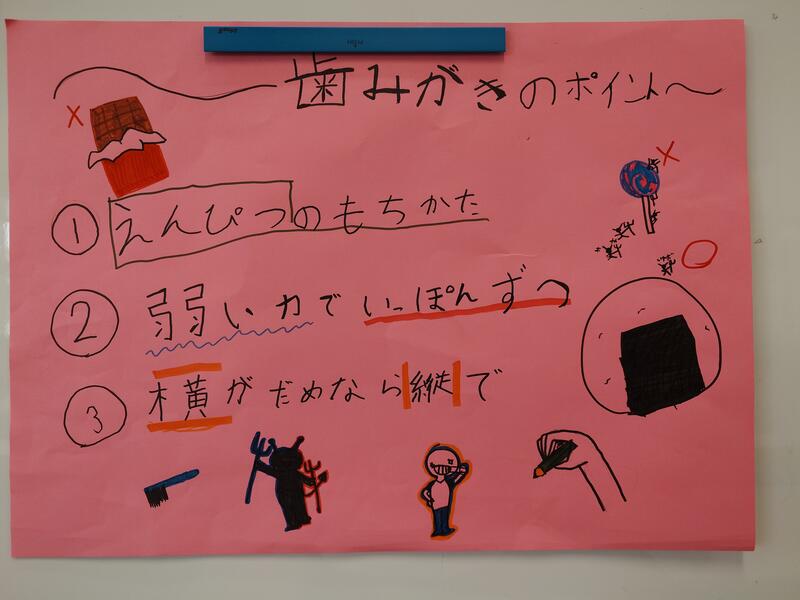 〜歯みがきのポイント〜
① えんぴつのもちかた
② 弱い力でいっぽんずつ
③ 横がだめなら縦で